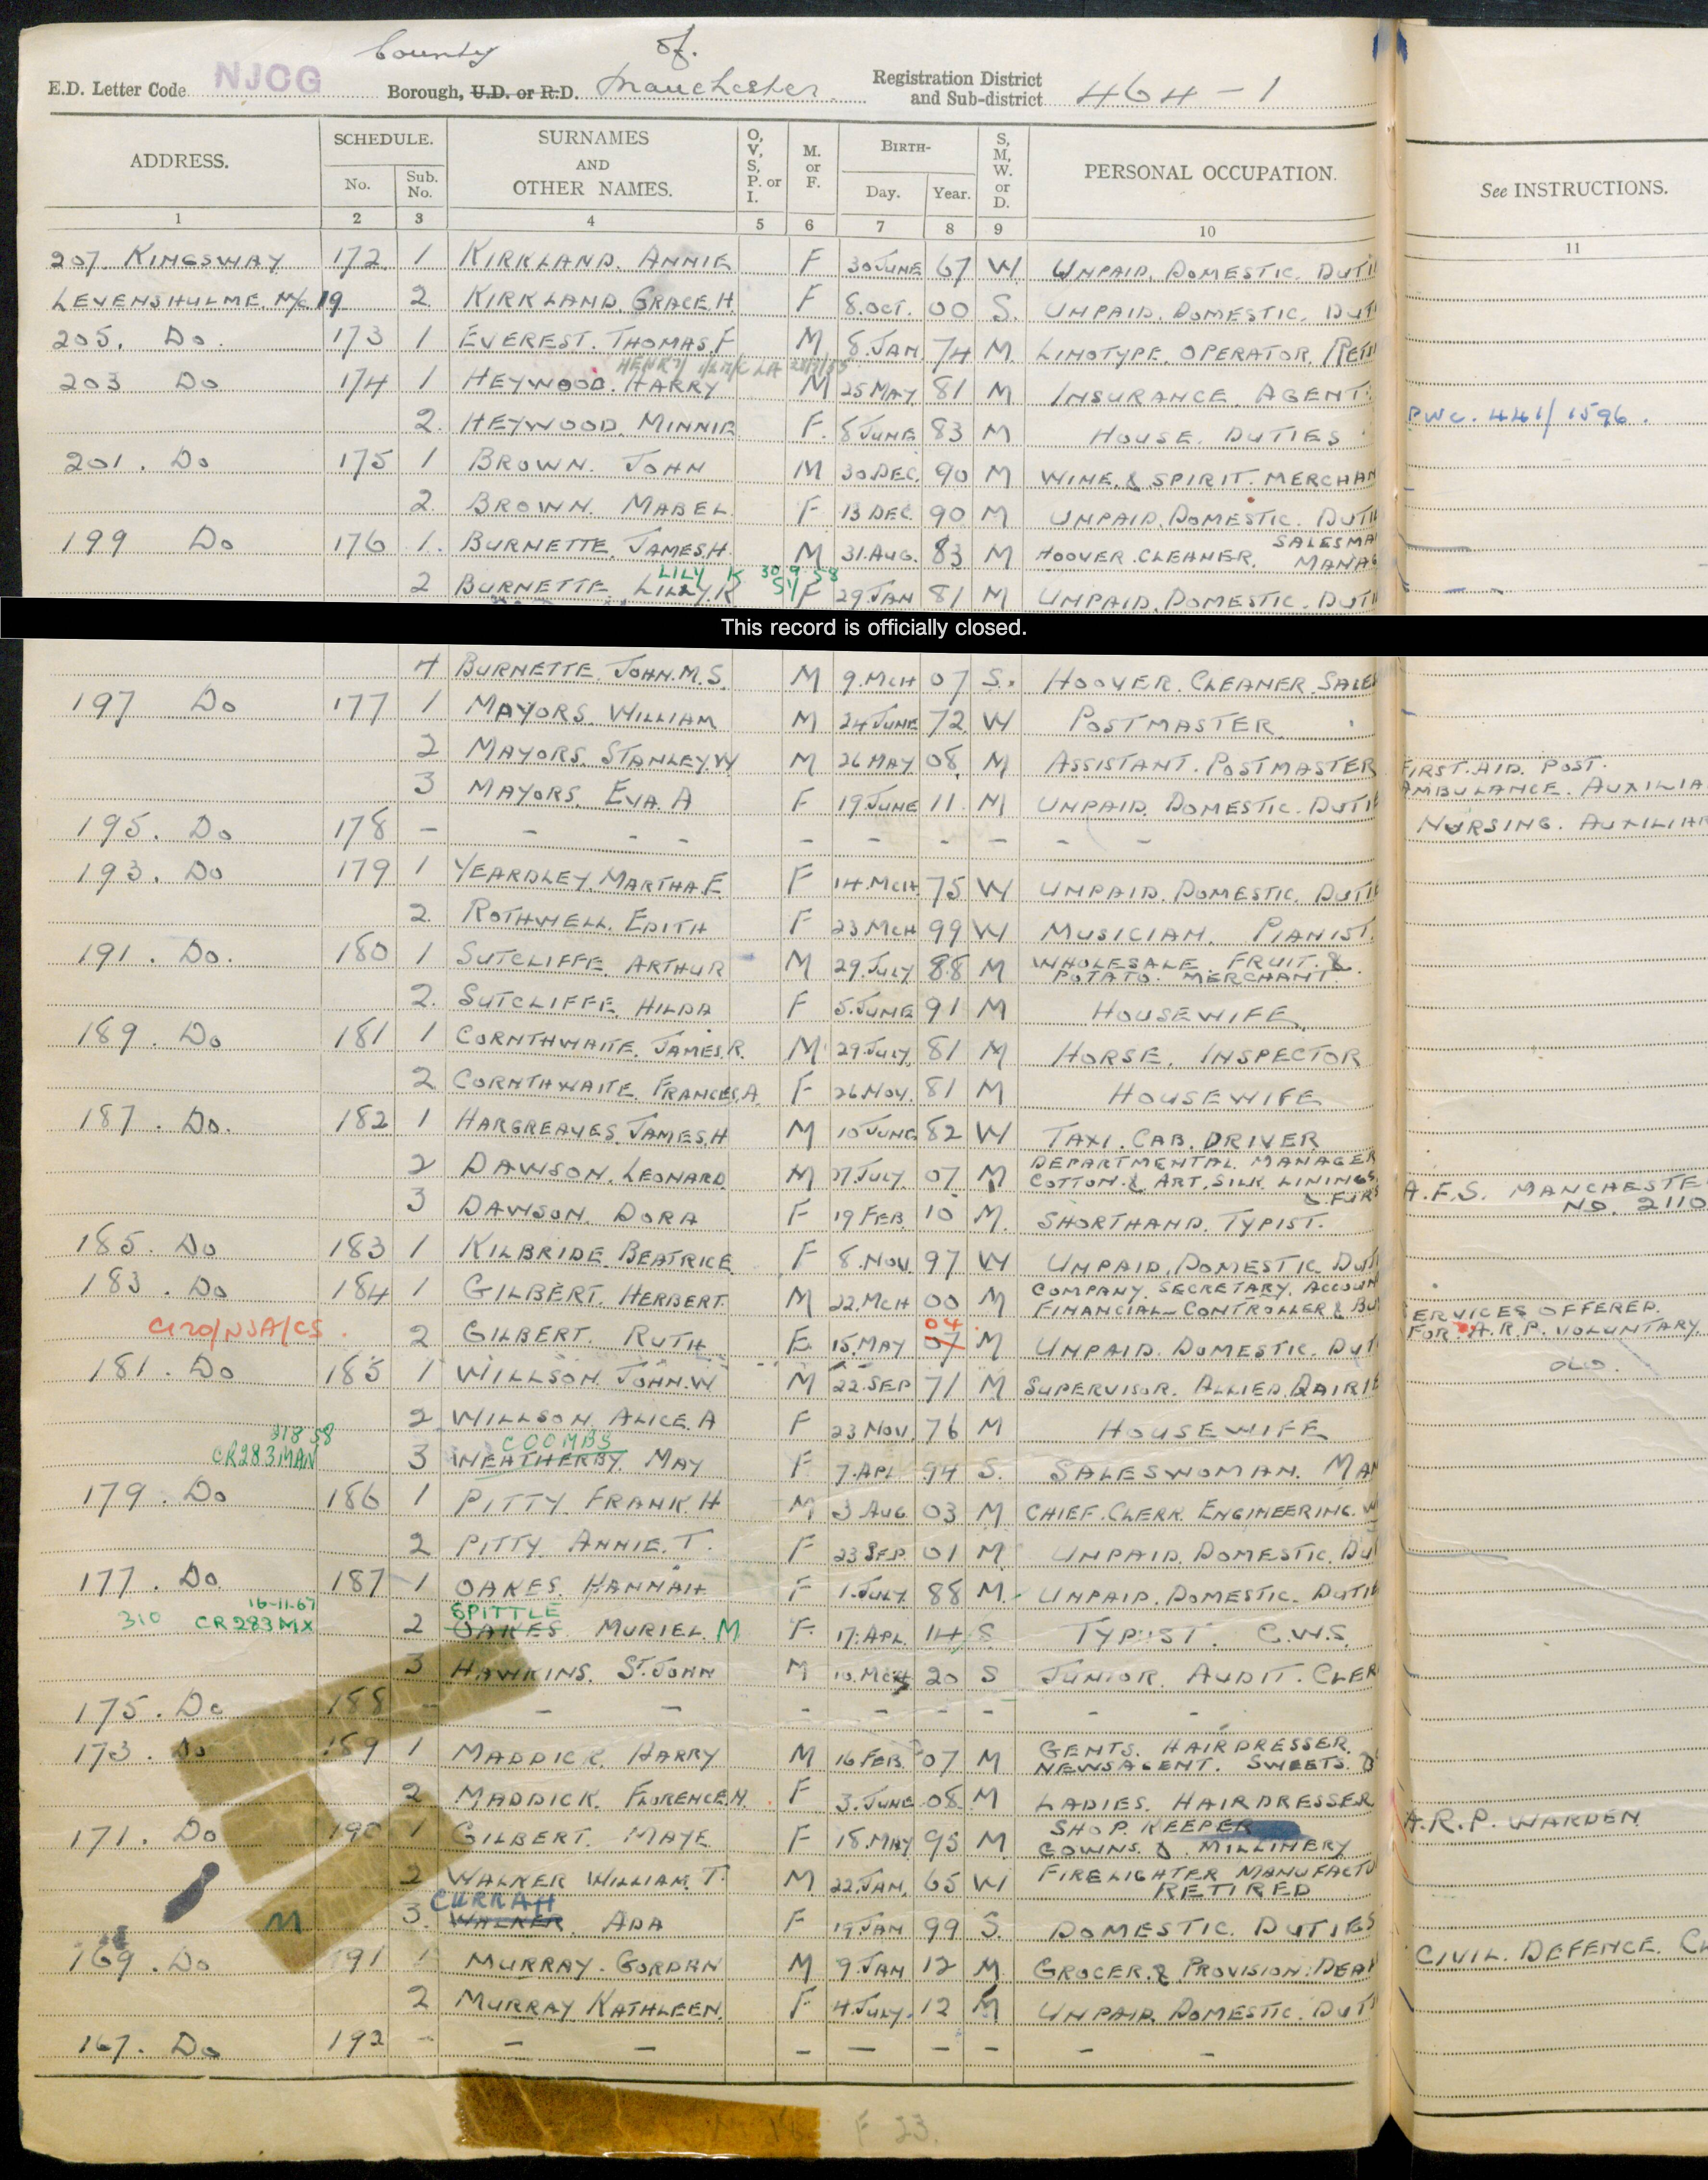 County of.
E.D. Letter Code NJOG Borough, U.D. or R.D. Manchester Registration District and Sub-district 464 - 1
ADDRESS. SCHEDULE. No. Sub. No. SURNAMES AND OTHER NAMES. O, V, S, P. or I. M. or F. BIRTH- Day. Year. S, M, W. or D. PERSONAL OCCUPATION. See INSTRUCTIONS.
1 2 3 4 5 6 7 8 9 10 11
207. KINGSWAY 172 1 KIRKLAND. ANNIE F 30 JUNE 67 W UNPAID. DOMESTIC. DUTI
LEVENSHULME. M/C. 19 2. KIRKLAND. GRACE. H. F 8. OCT. 00 S. UNPAID. DOMESTIC. DUT
205. Do. 173 1 EVEREST. THOMAS. F M 8. JAN 74 M. LINOTYPE. OPERATOR. (RETI
HENRY
203 Do 174 1 HEYWOOD. HARRY M 25 MAY. 81 M INSURANCE. AGENT.
2. HEYWOOD. MINNIE F. 8 JUNE 83 M HOUSE. DUTIES PWC. 441/1596.
201. Do 175 1 BROWN. JOHN M 30 DEC. 90 M WINE. & SPIRIT. MERCHAN
2. BROWN. MABEL F 13 DEC. 90 M UNPAID. DOMESTIC. DUTI
199 Do 176 1. BURNETTE. JAMES. H. M 31. AUG. 83 M HOOVER. CLEANER. SALESMA MANAG
LILY K 30 9 58
2 BURNETTE LILLY. K F 29 JAN 81 M UNPAID. DOMESTIC. DUTI
This record is officially closed.
4 BURNETTE. JOHN. M. S. M 9. MCH 07 S. HOOVER. CLEANER. SALE
197 Do 177 1 MAYORS. WILLIAM M 24 JUNE 72 W POSTMASTER
2 MAYORS. STANLEY. W M 26 MAY 08 M ASSISTANT. POSTMASTER FIRST. AID. POST.
AMBULANCE. AUXILIA
3 MAYORS. EVA. A F 19 JUNE 11. M UNPAID. DOMESTIC. DUTI
195. Do 178 - - - - - - - - - - - NURSING. AUXILIAR
193. Do 179 1 YEARDLEY. MARTHA. E. F 14. MCH 75 W UNPAID. DOMESTIC. DUTI
2. ROTHWELL. EDITH F 23 MCH 99 W MUSICIAN. PIANIST.
191. Do. 180 1 SUTCLIFFE. ARTHUR M 29. JULY 88 M WHOLESALE FRUIT. &
POTATO. MERCHANT.
2. SUTCLIFFE. HILDA F 5. JUNE 91 M HOUSEWIFE
189. Do 181 1 CORNTHWAITE. JAMES. R. M 29. JULY 81 M HORSE. INSPECTOR
2 CORNTHWAITE. FRANCES. A. F 26 NOV. 81 M HOUSEWIFE
187. Do. 182 1 HARGREAVES. JAMES. H M 10 JUNE 82 W TAXI. CAB. DRIVER
2 DAWSON. LEONARD M 27 JULY. 07 M DEPARTMENTAL. MANAGER
COTTON. & ART. SILK LININGS & FURS A.F.S. MANCHESTE
NO. 2110
3 DAWSON. DORA F 19 FEB. 10 M. SHORTHAND. TYPIST.
185. Do 183 1 KILBRIDE. BEATRICE F 8. NOV. 97 W UNPAID. DOMESTIC. DUT
183. Do 184 1 GILBERT. HERBERT. M 22. MCH 00 M COMPANY. SECRETARY. ACCOUN
FINANCIAL-CONTROLLER & BU SERVICES OFFERED.
FOR. A.R.P. VOLUNTARY.
04
2 GILBERT. RUTH F. 15. MAY 07 M UNPAID. DOMESTIC. DUT
181. Do 185 1 WILLSON. JOHN. W M 22. SEP 71 M SUPERVISOR. ALLIED. DAIRIE
2 WILLSON. ALICE. A F 23 NOV. 76 M HOUSEWIFE
COOMBS
CR283MAN 3 WEATHERBY. MAY F 7. APL. 94 S. SALESWOMAN. MAN
179. Do 186 1 PITTY. FRANK. H M 3 AUG 03 M. CHIEF. CLERK. ENGINEERING. W
2 PITTY. ANNIE. T. F 23 SEP. 01 M UNPAID. DOMESTIC. DU
177. Do 187 1 OAKES. HANNAH F 1. JULY 88 M. UNPAID. DOMESTIC. DUTI
16-11-67 SPITTLE
310 CR283MX 2 OAKES MURIEL. M F. 17. APL. 14 S TYPIST. C.W.S.
3 HAWKINS. ST. JOHN M 10. MCH 20 S JUNIOR. AUDIT. CLER
175. Do 188 - - - - - - - - -
173. Do 189 1 MADDICK. HARRY M 16 FEB 07 M GENTS. HAIRDRESSER.
NEWSAGENT. SWEETS.
2 MADDICK. FLORENCE. N. F 3. JUNE 08 M LADIES. HAIRDRESSER
171. Do 190 1 GILBERT. MAYE F 18. MAY 95 M SHOP. KEEPER A.R.P. WARDEN
GOWNS. & MILLINERY
2 WALKER WILLIAM. T. M 22. JAN. 65 W FIRELIGHTER MANUFACTU
RETIRED
CURRAH
M 3. WALKER. ADA F 19 JAN 99 S. DOMESTIC. DUTIES
169. Do 191 1 MURRAY. GORDAN M 9 JAN 12 M GROCER. & PROVISION. DEA CIVIL. DEFENCE. CL
2 MURRAY KATHLEEN. F 4 JULY. 12 M UNPAID. DOMESTIC. DUT
167. Do 192 - - - - - - - - -
F 23.